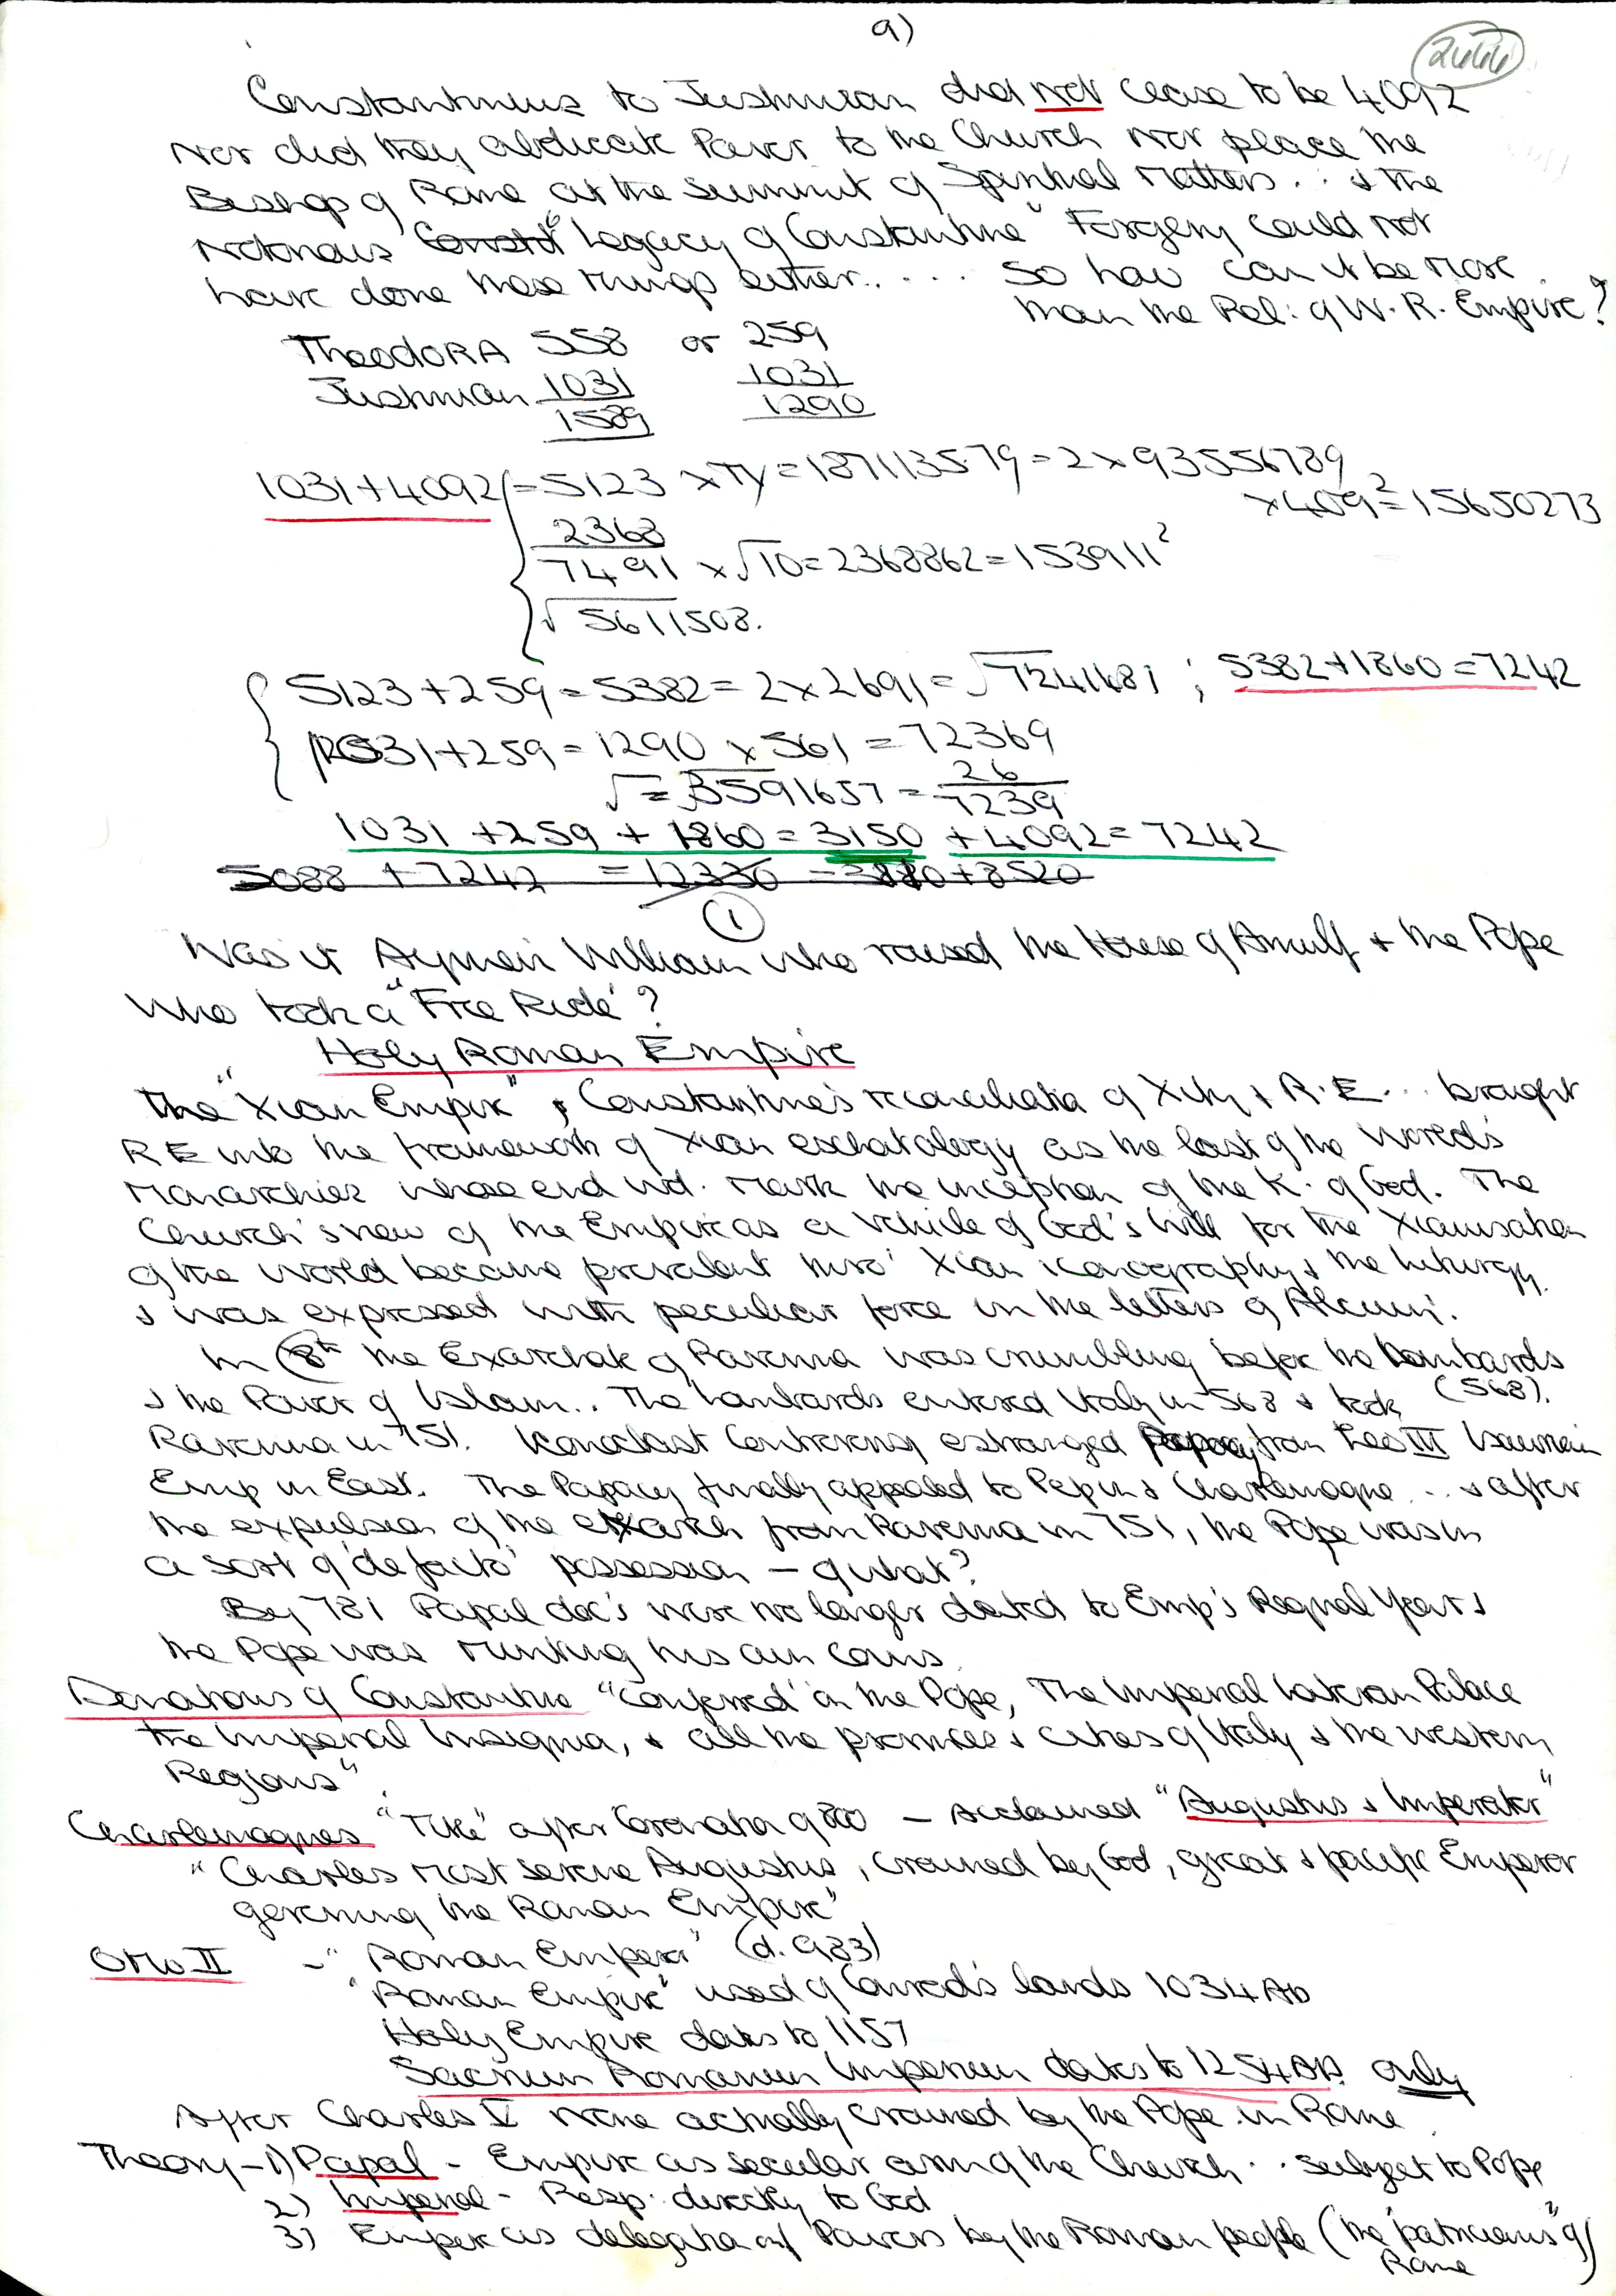 9)
2666
Constantinius to Justinian did not cease to be 4092
Nor did they abdicate Power to the Church nor place the
Bishop of Rome at the summit of Spiritual Matters.. & the
Notorious "Legacy of Constantine" Forgery could not
have done these things either.... So how can it be more
than the Rel: of W. R. Empire?
TheodoRA 558 or 259
Justinian 1031 1031
1589 1290
1031+4092 = 5123 × TY = 187113579 = 2×93556789
×409² = 15650273
2368
7491 × √10 = 2368862 = 153911²
√5611508.
5123+259 = 5382 = 2×2691 = √7241481 ; 5382+1860=7242
1031+259 = 1290 × 561 = 72369
√ = 3591657 = 26
7239
1031 + 259 + 1860 = 3150 + 4092 = 7242
5088 + 7242 = 12330 = 3810+8520
(1)
Was it Aymeri William who raised the House of Arnulf & the Pope
who took a "Free Ride"?
Holy Roman Empire
The "Xian Empire" & Constantine's reconciliatio of Xity & R.E... brought
RE into the framework of Xian eschatology as the last of the World's
Monarchies whose end wd. mark the inception of the K. of God. The
Church's view of the Empire as a vehicle of God's will for the Xianisation
of the World became prevalent thro' Xian iconography & the liturgy
& was expressed with peculiar force in the letters of Alcuin.
In 8th the Exarchate of Ravenna was crumbling before the Lombards
& the Power of Islam.. The Lombards entered Italy in 568 & took (568).
Ravenna in 751. Iconoclast Controversy estranged Papacy from Leo III Isaurian
Emp in East. The Papacy finally appealed to Pepin & Charlemagne... & after
the expulsion of the exarch from Ravenna in 751, the Pope was in
a sort of 'de facto' possession – of what?
By 781 Papal doc's were no longer dated to Emp's Regnal Years &
the Pope was minting his own coins.
Donations of Constantine "Conferred' on the Pope, The Imperial Lateran Palace
the Imperial Insignia, & all the provinces & cities of Italy & the western
Regions".
Charlemagnes "Title" after Coronatio of 800 – Acclaimed "Augustus & Imperator"
"Charles most serene Augustus, crowned by God, great & pacific Emperor
governing the Roman Empire"
Otto II – "Roman Emperor" (d. 983)
"Roman Empire" used of Conrad's lands 1034 AD
Holy Empire dates to 1157
Sacrum Romanum Imperium dates to 1254 AD. only
After Charles V none actually crowned by the Pope in Rome
Theory – 1) Papal – Empire as secular arm of the Church.. subject to Pope
2) Imperial – Resp. directly to God
3) Emper as delegatio of Powers by the Roman people (the "patricians" of
Rome